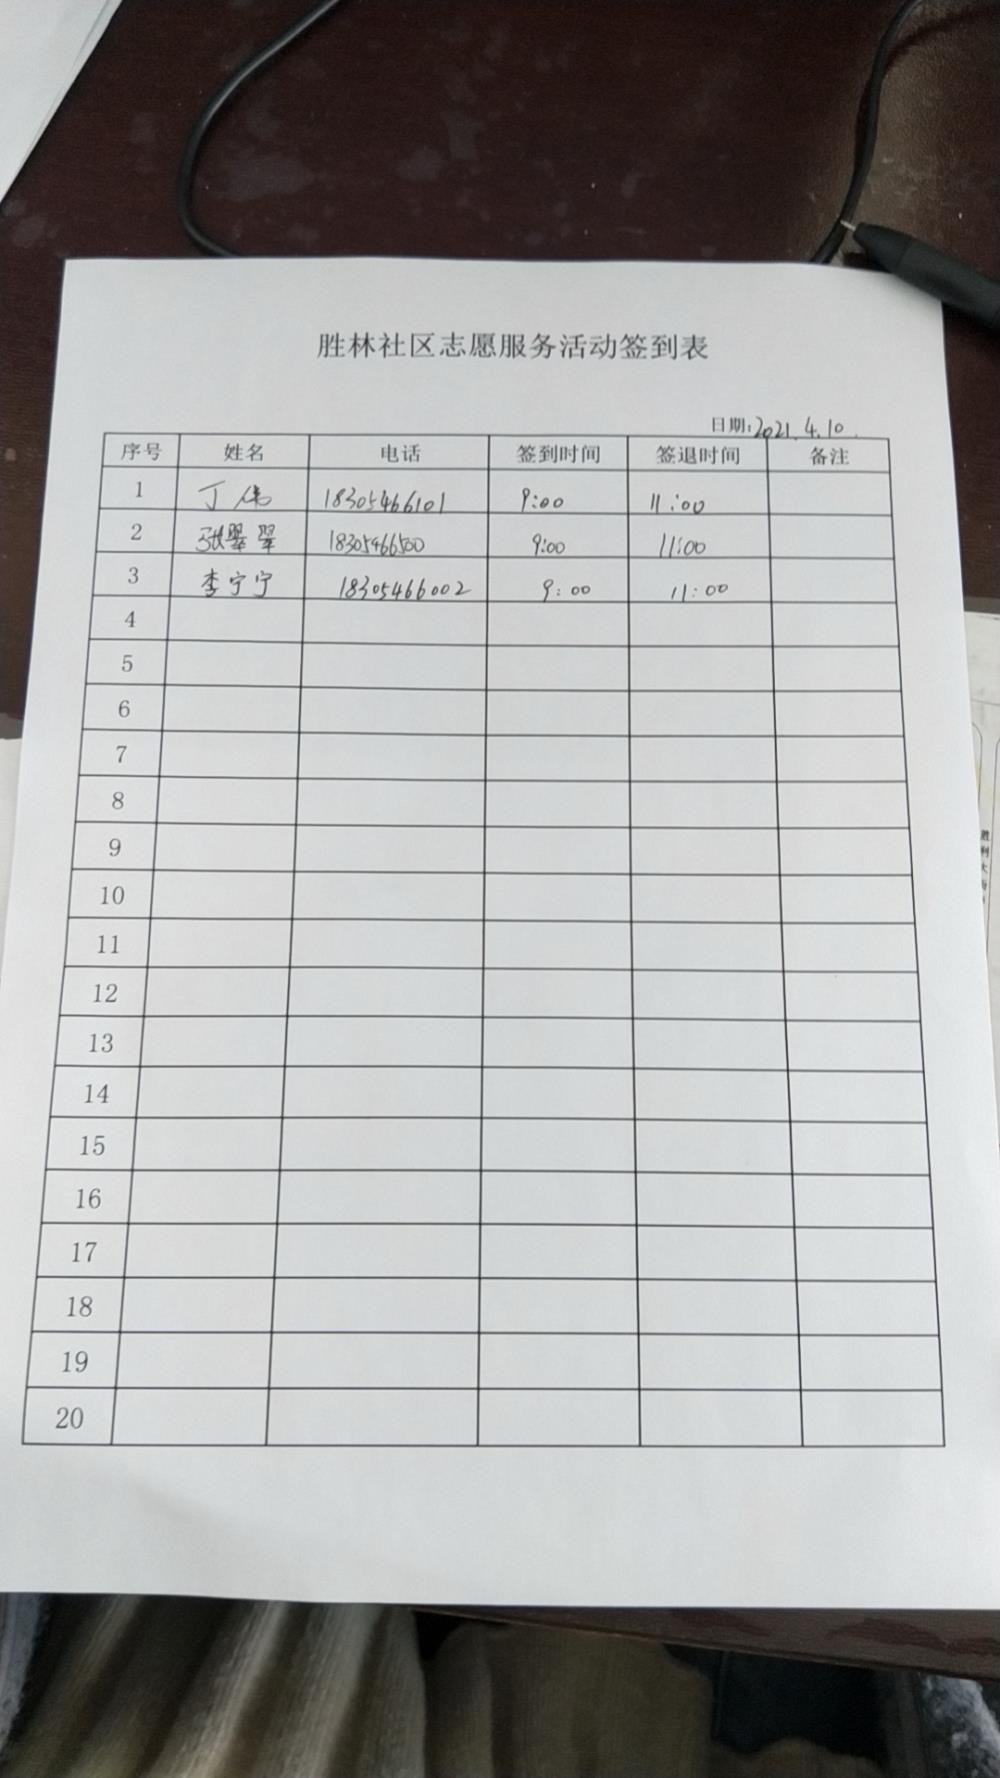 胜林社区志愿服务活动签到表
日期:2021.4.10.
序号 姓名 电话 签到时间 签退时间 备注
1 丁伟 18305466101 9:00 11:00
2 张翠翠 18305466500 9:00 11:00
3 李宁宁 18305466002 9:00 11:00
4
5
6
7
8
9
10
11
12
13
14
15
16
17
18
19
20
胜利大街